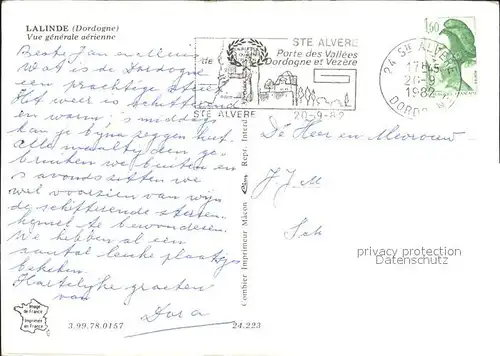 LALINDE (Dordogne)
Vue générale aérienne
Beste Jan en
Wat is de Dordogne
een prachtige streek
Het weer is schitterend
en warm, 's middags
kan je bijna zeggen heet.
Alle maaltijden ge-
bruiken we buiten en
's avonds zitten we
wel voorzien van wijn
de schitterende sterren-
hemel te bewonderen.
We hebben al een
aantal leuke plaatsjes
bekeken.
Hartelijke groeten
van
Dora
STE ALVERE
Porte des Vallées
Dordogne et Vezère
STE ALVERE 20-9-82
24 STE ALVERE
17H45
20-9
1982
DORDOGNE
1,60
De Heer en Mevrouw
J J M
Sch
Combier Imprimeur Mâcon
Repr. Interd
privacy protection
watermark
Image
de France
Imprimée
en France
3.99.78.0157
24.223